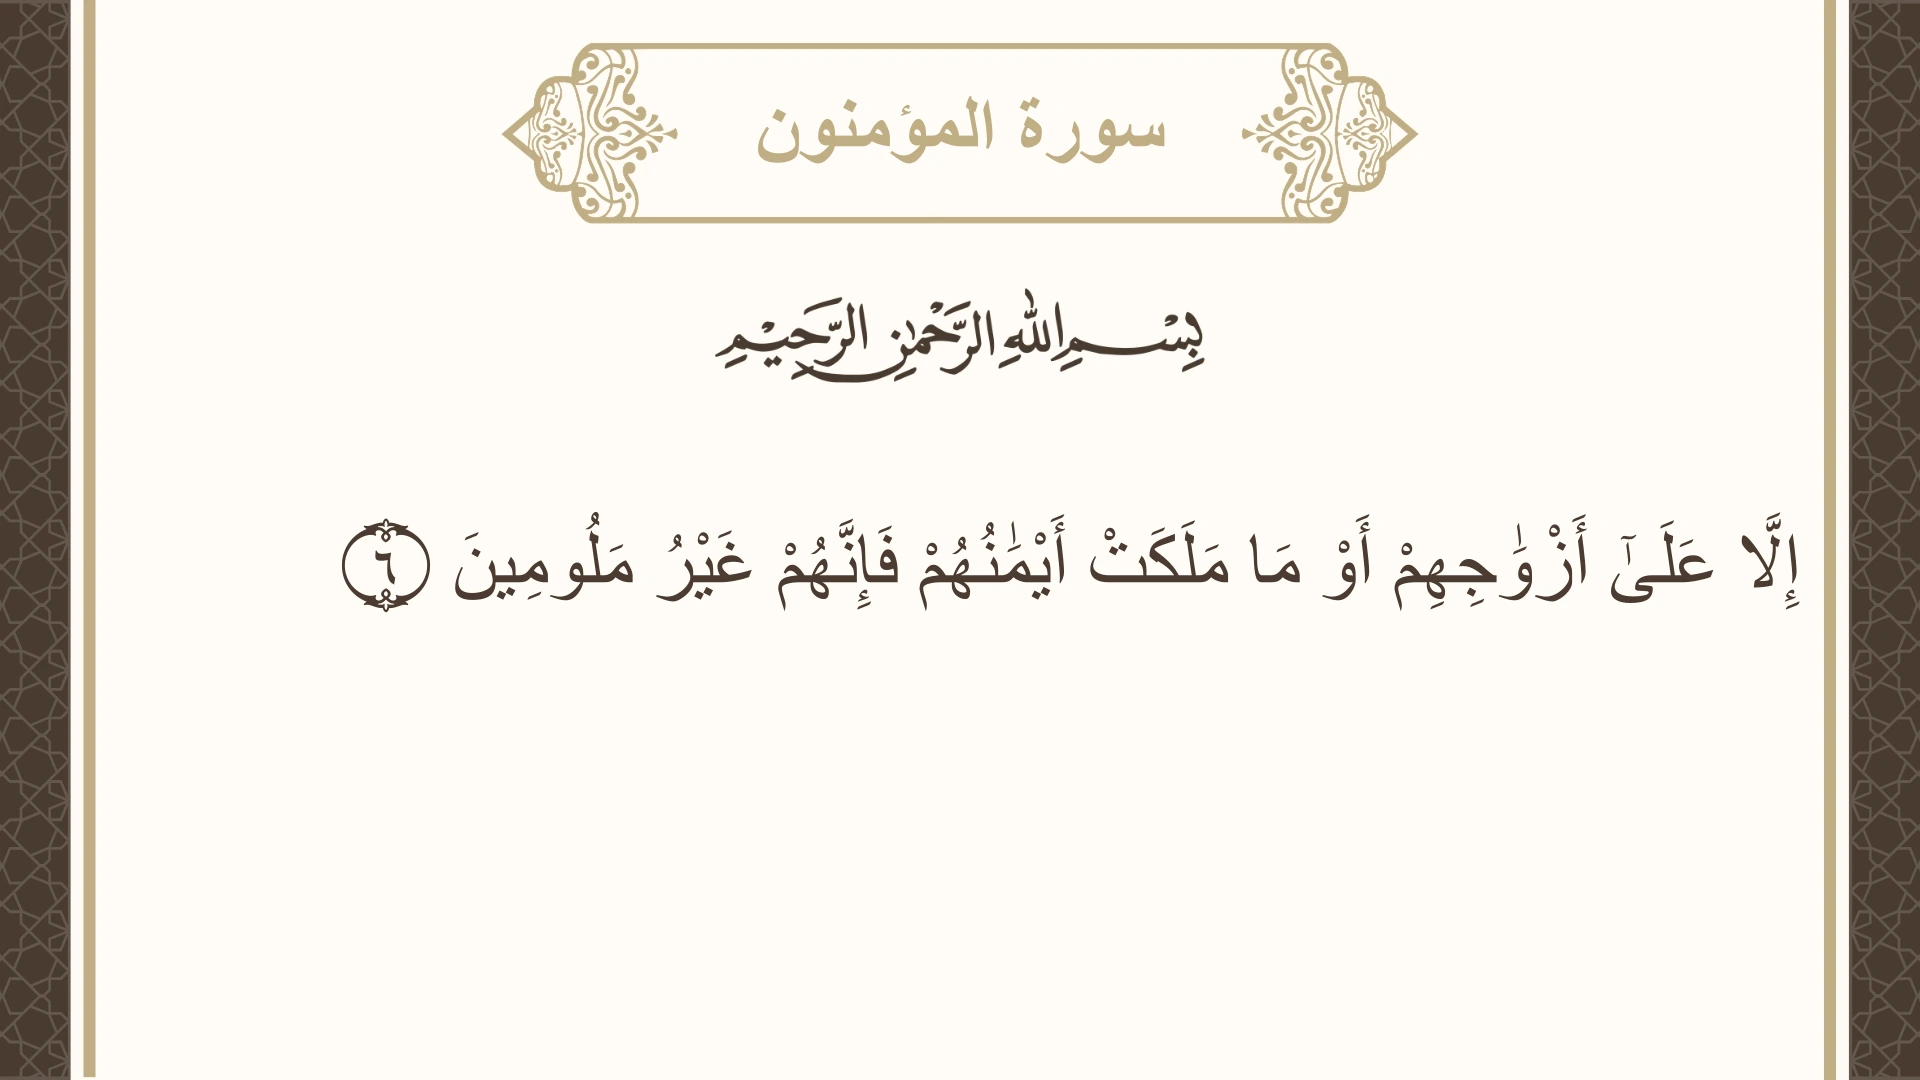 سورة المؤمنون
بِسْمِ اللهِ الرَّحْمٰنِ الرَّحِيْمِ
إِلَّا عَلَىٰٓ أَزْوَٰجِهِمْ أَوْ مَا مَلَكَتْ أَيْمَٰنُهُمْ فَإِنَّهُمْ غَيْرُ مَلُومِينَ ٦